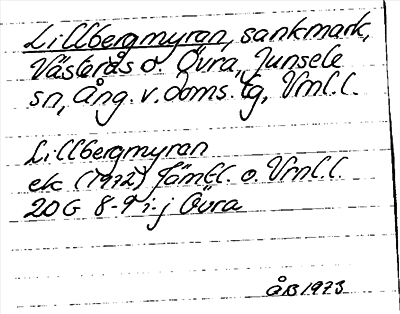 Lillbergmyran, sankmark,
Västerås o. Övra, Junsele
sn, Ång. v. doms. tg, Vrnl.l.
Lillbergmyran
ek (1972) Jämtl. o. Vrnl.l.
20G 8-9 i-j Övra
ÅB 1973